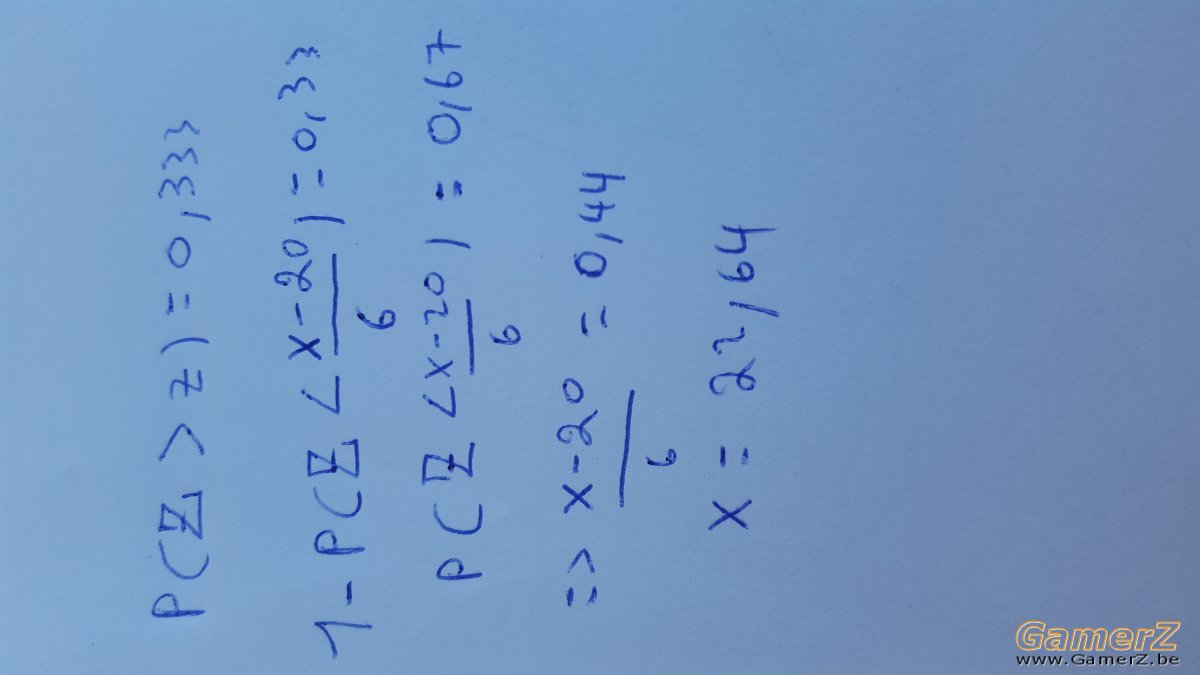 P(Z > z) = 0,333
1 - P(Z < x-20/6) = 0,33
P(Z < x-20/6) = 0,67
=> x-20/6 = 0,44
x = 22,64
GamerZ
www.GamerZ.be